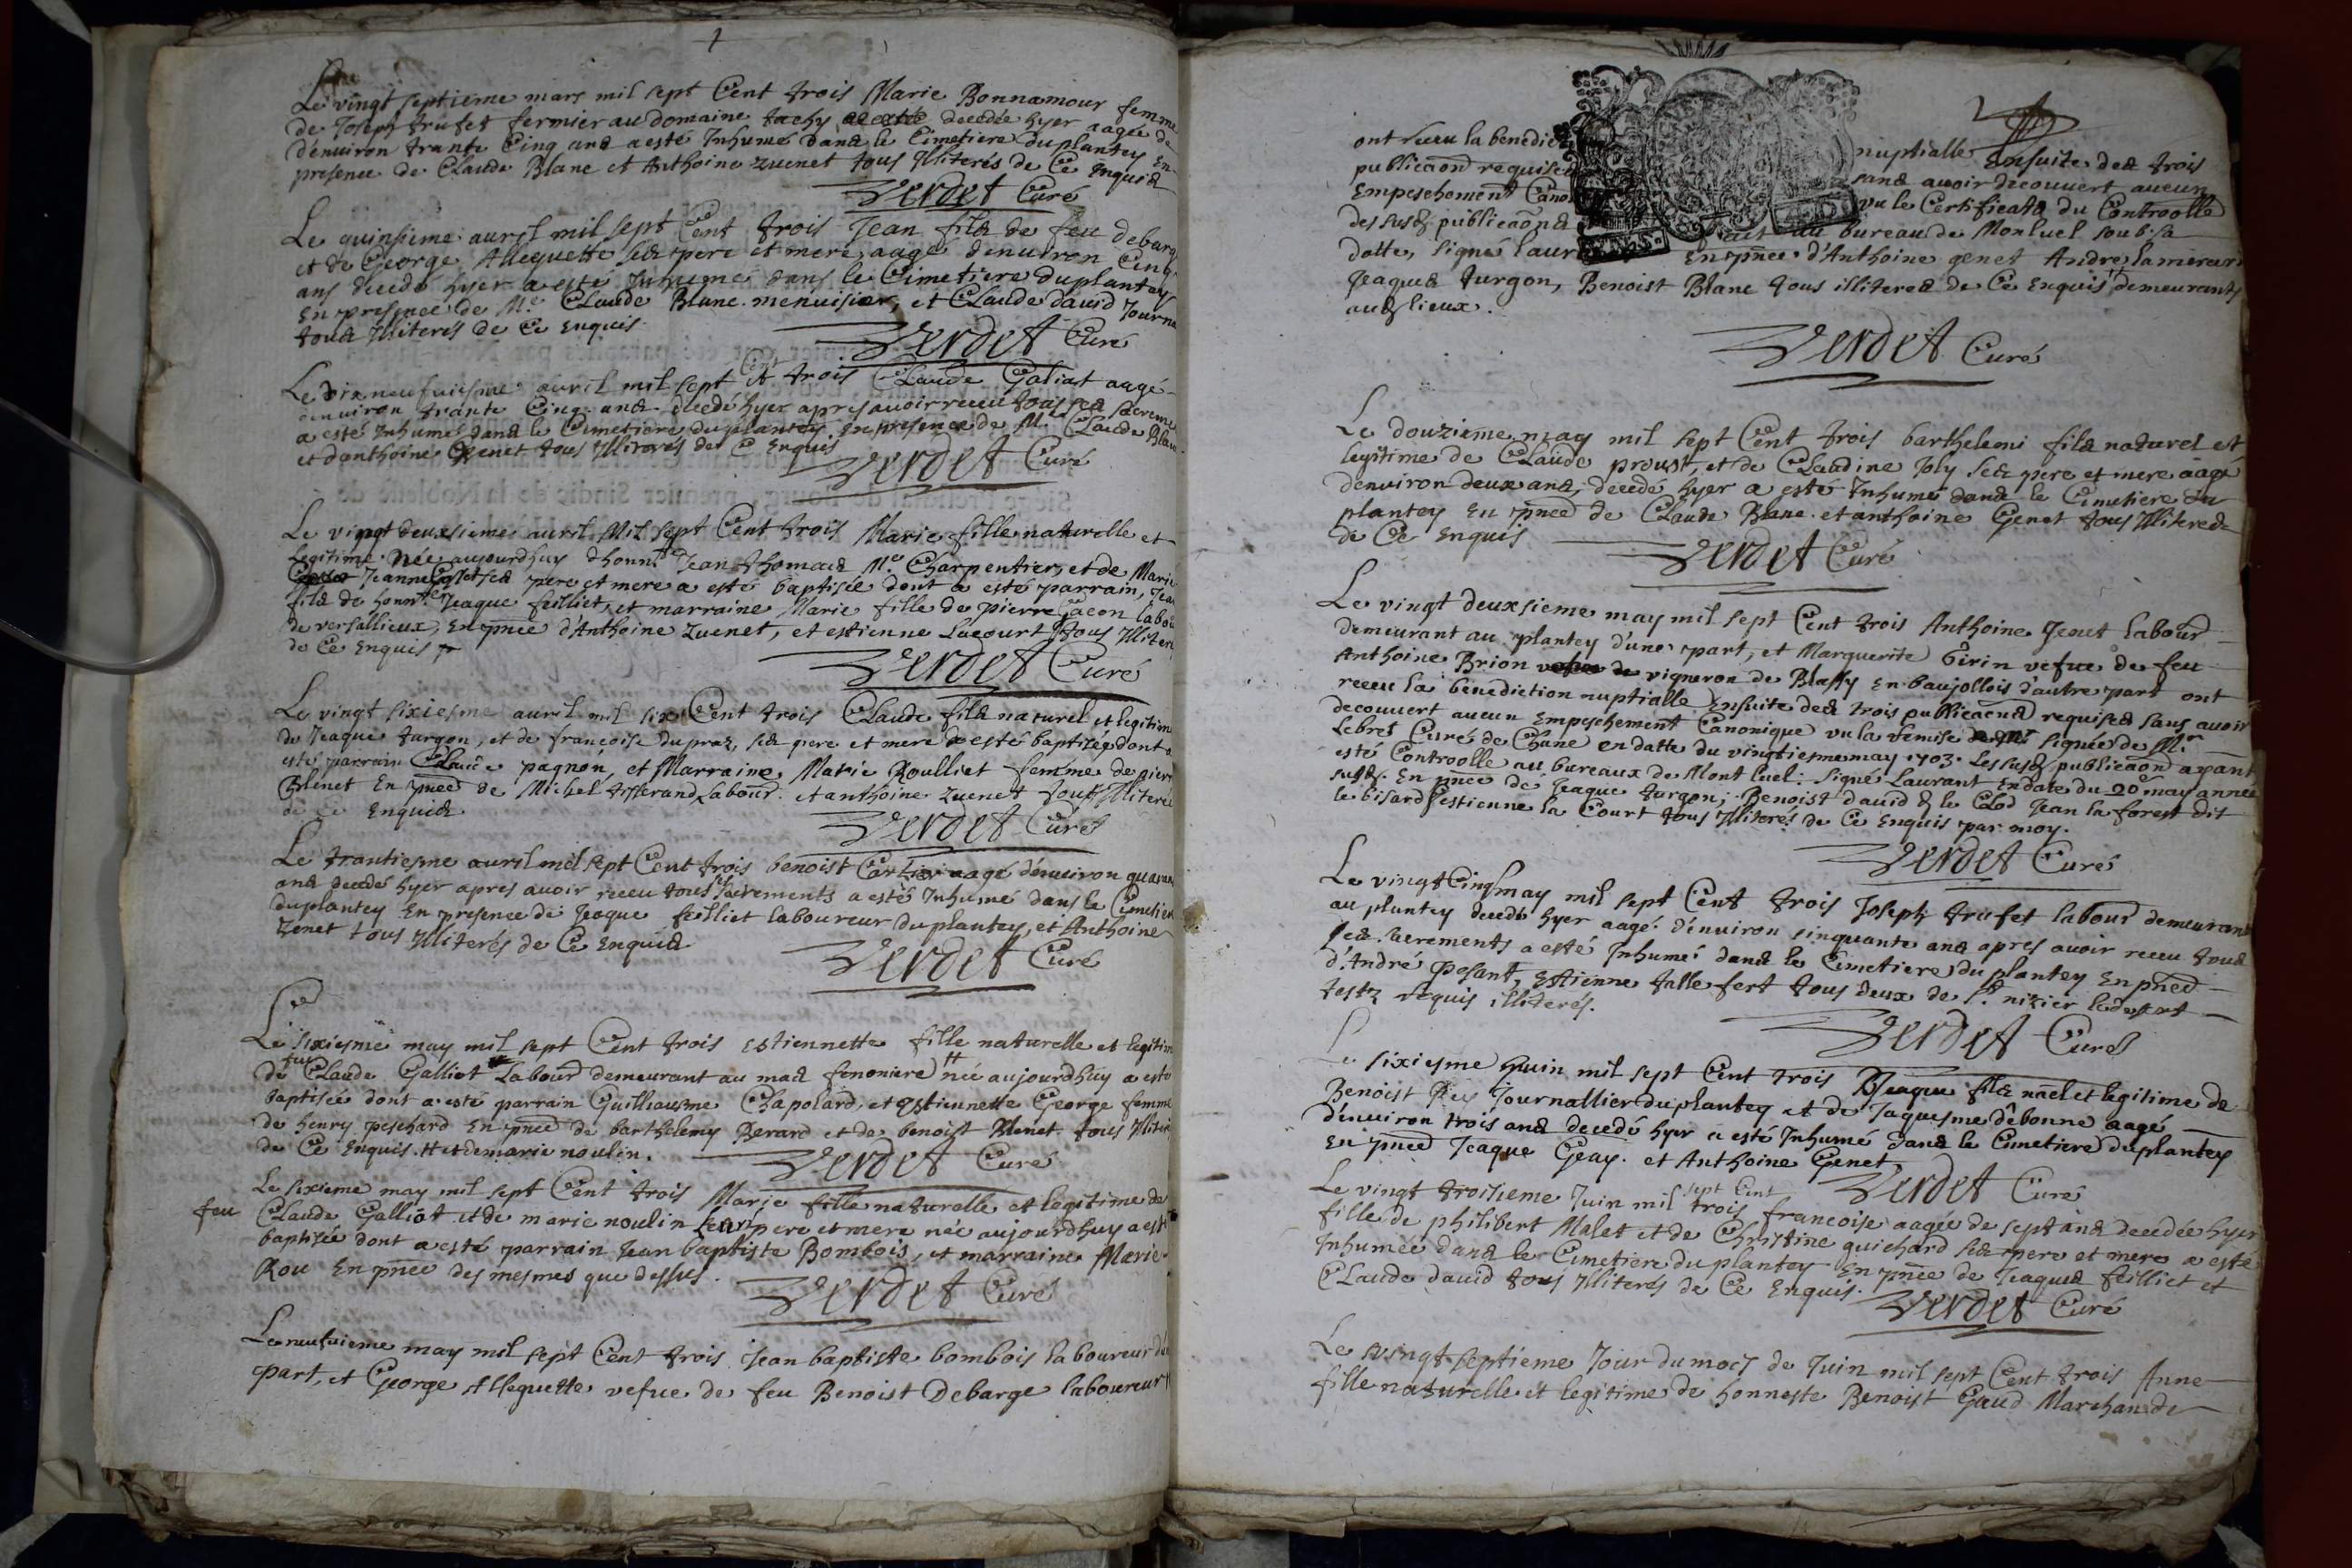 1
Le vingt septieme mars mil sept Cent trois Marie Bonnamour femme
de Joseph trufet fermier au domaine tachy decedée hyer aagée de
d'environ trante Cinq ans a esté Inhumé dans le Cimetiere du plantey En
presence de Claude Blanc et Anthoine zuenet tous Illiterés de Ce Enquis
Verdet Curé
Le quinsieme avril mil sept Cent trois Jean fils de feu debarge
et de George Alleguette ses pere et mere, aagé d'environ Cinq
ans decedé hyer a esté Inhumé dans le Cimetiere du plantey
En presence de Me Claude Blanc menuisier, et Claude david Journa
tous Illiterés de Ce Enquis.
Verdet Curé
Le dix neufviesme avril mil sept Cent trois Claude Galiat aagé
d'environ trante Cinq ans decedé hyer apres avoir receu tous ses sacreme
a esté Inhumé dans le Cimetiere du plantey En presence de M. Claude Blan
et d'anthoine Genet tous Illiterés de Ce Enquis
Verdet Curé
Le vingt deuxsieme avril Mil sept Cent trois Marie fille naturelle et
legitime Née aujourdhuy d'honn. Jean thomas Me Charpentier, et de Marie
Jeanne ses pere et mere a esté baptisée dont a esté parrain, Jea
fils de honn.te Jeaque feilliet, et marraine Marie fille de pierre Gacon labou
de versallieux, En pnce d'Anthoine zuenet, et estienne Lacourt tous Illiter
de Ce Enquis
Verdet Curé
Le vingt sixiesme avril mil six Cent trois Claude fils naturel et legitim
de Jeaque turgon, et de francoise dupraz, ses pere et mere a esté baptisé, dont a
esté parrain Claude pagnon et Marraine Marie Roulliet femme de pierr
Blenet En pnce de Michel tisserand Labour. et anthoine zuenet tous Illiteré
de Ce Enquis
Verdet Curé
Le trantiesme avril mil sept Cent trois benoist Cartier aagé d'environ quaran
ans decedé hyer apres avoir receu tous ses sacrements a esté Inhumé dans le Cimetier
du plantey En presence de Jeaque feilliet laboureur du plantey, et Anthoine
zenet tous Illiterés de Ce Enquis
Verdet Curé
Le sixiesme may mil sept Cent trois Estiennette fille naturelle et legitim
de feu Claude Galliot Labour demeurant au mas fenoniere ++ née aujourdhuy a esté
baptisée dont a esté parrain Guilliausme Chapolard, et Estiennette George femme
de henry peschard En pnce de barthelemy Berard et de benoist Blenet tous Illiter
de Ce Enquis. ++ et de marie noulin.
Verdet Curé
Le sixieme may mil sept Cent trois Marie fille naturelle et legitime de
feu Claude Galliot et de marie noulin ses pere et mere née aujourdhuy a esté
baptisée dont a esté parrain Jean baptiste Bombois, et marraine Marie
Rou En pnce des mesmes que dessus.
Verdet Curé
Le neufvieme may mil sept Cent trois Jean baptiste bombois laboureur d'u
part, et George Alleguette vefve de feu Benoist Debarge laboureur
ont receu la benedict nuptialle Ensuite des trois
publicaons requises sans avoir decouvert aucun
Empeschement Cano vu le Certificats du Controolle
des susd. publicaons au bureau de Monluel soub sa
datte, signé laur En pnce d'Anthoine genet Andre lamercuri
Jeaques turgon, Benoist Blanc tous illiteres de Ce Enquis demeurants
ausd lieux.
Verdet Curé
Le douzieme may mil sept Cent trois barthelemi fils naturel et
legitime de Claude proust, et de Claudine Joly ses pere et mere aagé
d'environ deux ans, decedé hyer a esté Inhumé dans le Cimetiere du
plantey En pnce de Claude Blanc et anthoine Genet tous Illiteres
de Ce Enquis
Verdet Curé
Le vingt deuxsieme may mil sept Cent trois Anthoine Jenet labour
demeurant au plantey d'une part, et Marguerite Girin vefve de feu
Anthoine Brion vigneron de Blassy En baujollois d'autre part ont
receu la benediction nuptialle Ensuite des trois publicaons requises sans avoir
decouvert aucun Empeschement Canonique vu la remise signée de Mr
Lebret Curé de Chane en datte du vingtiesme may 1703. Les susd publicaons ayant
esté Controolle au bureaux de Mont luel: signé Laurant En date du 20e may année
susd. En pnce de Jeaque turgon, Benoist david & le Clod Jean la forest dit
le bisard estienne la Court tous Illiterés de Ce Enquis par moy.
Verdet Curé
Le vingt Cinq may mil sept Cent trois Joseph trufet labour demeurans
au plantey decedé hyer aagé d'environ sinquante ans apres avoir receu tous
ses sacrements a esté Inhumé dans le Cimetiere du plantey En pnce
d'André posant, Estienne tallefert tous deux de St. nizier ledesert
testz requis illiterés.
Verdet Curé
Le sixiesme Juin mil sept Cent trois Jeaque fils nael et legitime de
Benoist Rey Journallier du plantey et de Jaquesme debonne aagé
d'environ trois ans decedé hyer a esté Inhumé dans le Cimetiere du plantey
En pnce Jeaque Geay. et Anthoine Genet
Verdet Curé
Le vingt troisieme Juin mil sept Cent trois francoise aagée de sept ans decedée hyer
fille de philibert Malet et de Christine guichard ses pere et mere a esté
Inhumée dans le Cimetiere du plantey En pnce de Jeaques feilliet et
Claude david tous Illiterés de Ce Enquis.
Verdet Curé
Le vingt septieme Jour du mois de Juin mil sept Cent trois Anne
fille naturelle et legitime de honneste Benoist Gaud Marchand